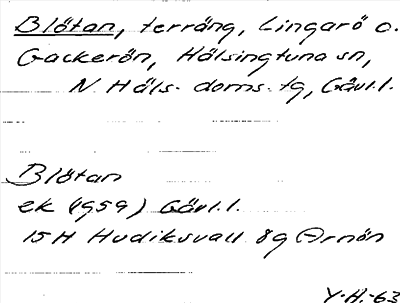 Blötan, terräng, Lingarö o.
Gackerön, Hälsingtuna sn,
N Häls. doms. tg, Gävl.l.
Blötan
ek (1959) Gävl.l.
15H Hudiksvall 8g Arnön
Y.H.-63